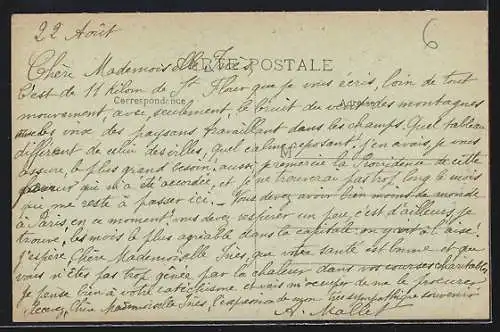 22 Août
6
CARTE POSTALE
Correspondance
Chère Mademoiselle Inès,
C'est de 11 Kilom de St Flour que je vous écris, loin de tout
mouvement, avec, seulement, le bruit du vent des montagnes
et la voix des paysans travaillant dans les champs. Quel tableau
différent de celui des villes, quel calme reposant! J'en avais, je vous
assure, le plus grand besoin, aussi, je remercie la Providence de cette
faveur qui m'a été accordée, et je ne trouverai pas trop long le mois
qui me reste à passer ici. - Vous devez avoir bien moins de monde
à Paris, en ce moment; vous devez respirer un peu, c'est d'ailleurs, je
trouve, les mois le plus agréable dans la capitale: on y est à l'aise!
J'espère Chère Mademoiselle Inès, que votre santé est bonne et que
vous n'êtes pas trop gênée par la chaleur dans vos courses charitables.
Je pense bien à votre catéchisme et vais m'occuper de me le procurer
Recevez, Chère Mademoiselle Inès, l'expression de mon très sympathique souvenir
A. Mallet